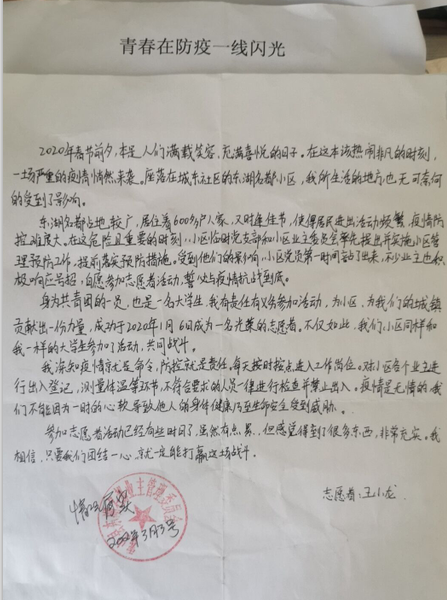 青春在防疫一线闪光
2020年春节前夕,本是人们满载笑容,充满喜悦的日子。在这本该热闹非凡的时刻,
一场严重的疫情悄然来袭。座落在城东社区的东湖名都小区,我所生活的地方也无可奈何
的受到了影响。
东湖名都占地较广,居住着600多户人家,又时逢佳节,使得居民进出活动频繁,疫情防
控难度大。在这危险且重要的时刻,小区临时党支部和小区业主委会率先提出并实施小区管
理预防工作,提前落实预防措施。受到他们的影响,小区党员第一时间站了出来,不少业主也积
极响应号召,自愿参加志愿者活动,誓与疫情抗战到底。
身为共青团的一员,也是一名大学生,我有责任有义务参加活动,为小区,为我们的城镇
贡献出一份力量,成功于2020年1月6日成为一名光荣的志愿者,不仅如此,我们小区同样和
我一样的大学生参加了活动,共同战斗。
我深知疫情就是命令,防控就是责任,每天按时按点进入工作岗位。对小区各个业主进
行出入登记,测量体温等环节,不符合要求的人员一律进行检查并禁止出入。疫情是无情的,我
们不能因为一时的心软,导致他人的身体健康乃至生命安全受到威胁。
参加志愿者活动已经有些时日了,虽然有点累,但感觉得到了很多东西,非常充实。我
相信,只要我们团结一心,就一定能打赢这场战斗。
志愿者:王小龙
情况属实
3月3号